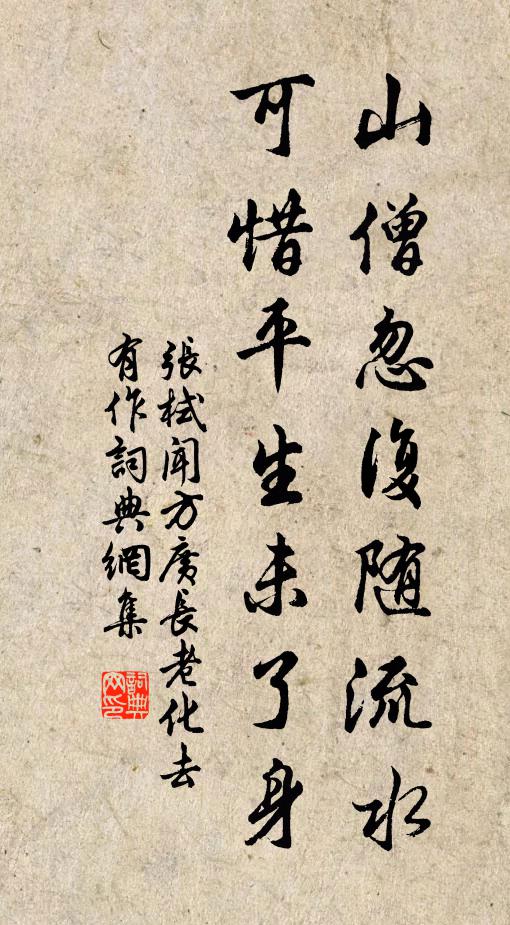 山僧忽復随流水
可惜平生未了身
張栻聞方廣長老化去
有作詞典網集
詞典
网印